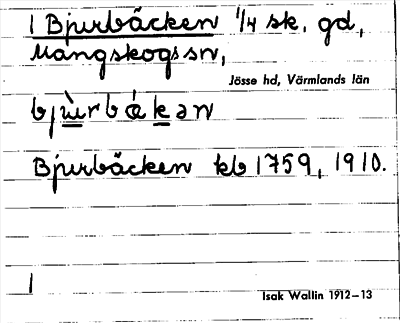 1 Bjurbäcken 1/4 sk. gd,
Mangskogs sn,
Jösse hd, Värmlands län
bjùrbákan
Bjurbäcken kb 1759, 1910.
1
Isak Wallin 1912–13